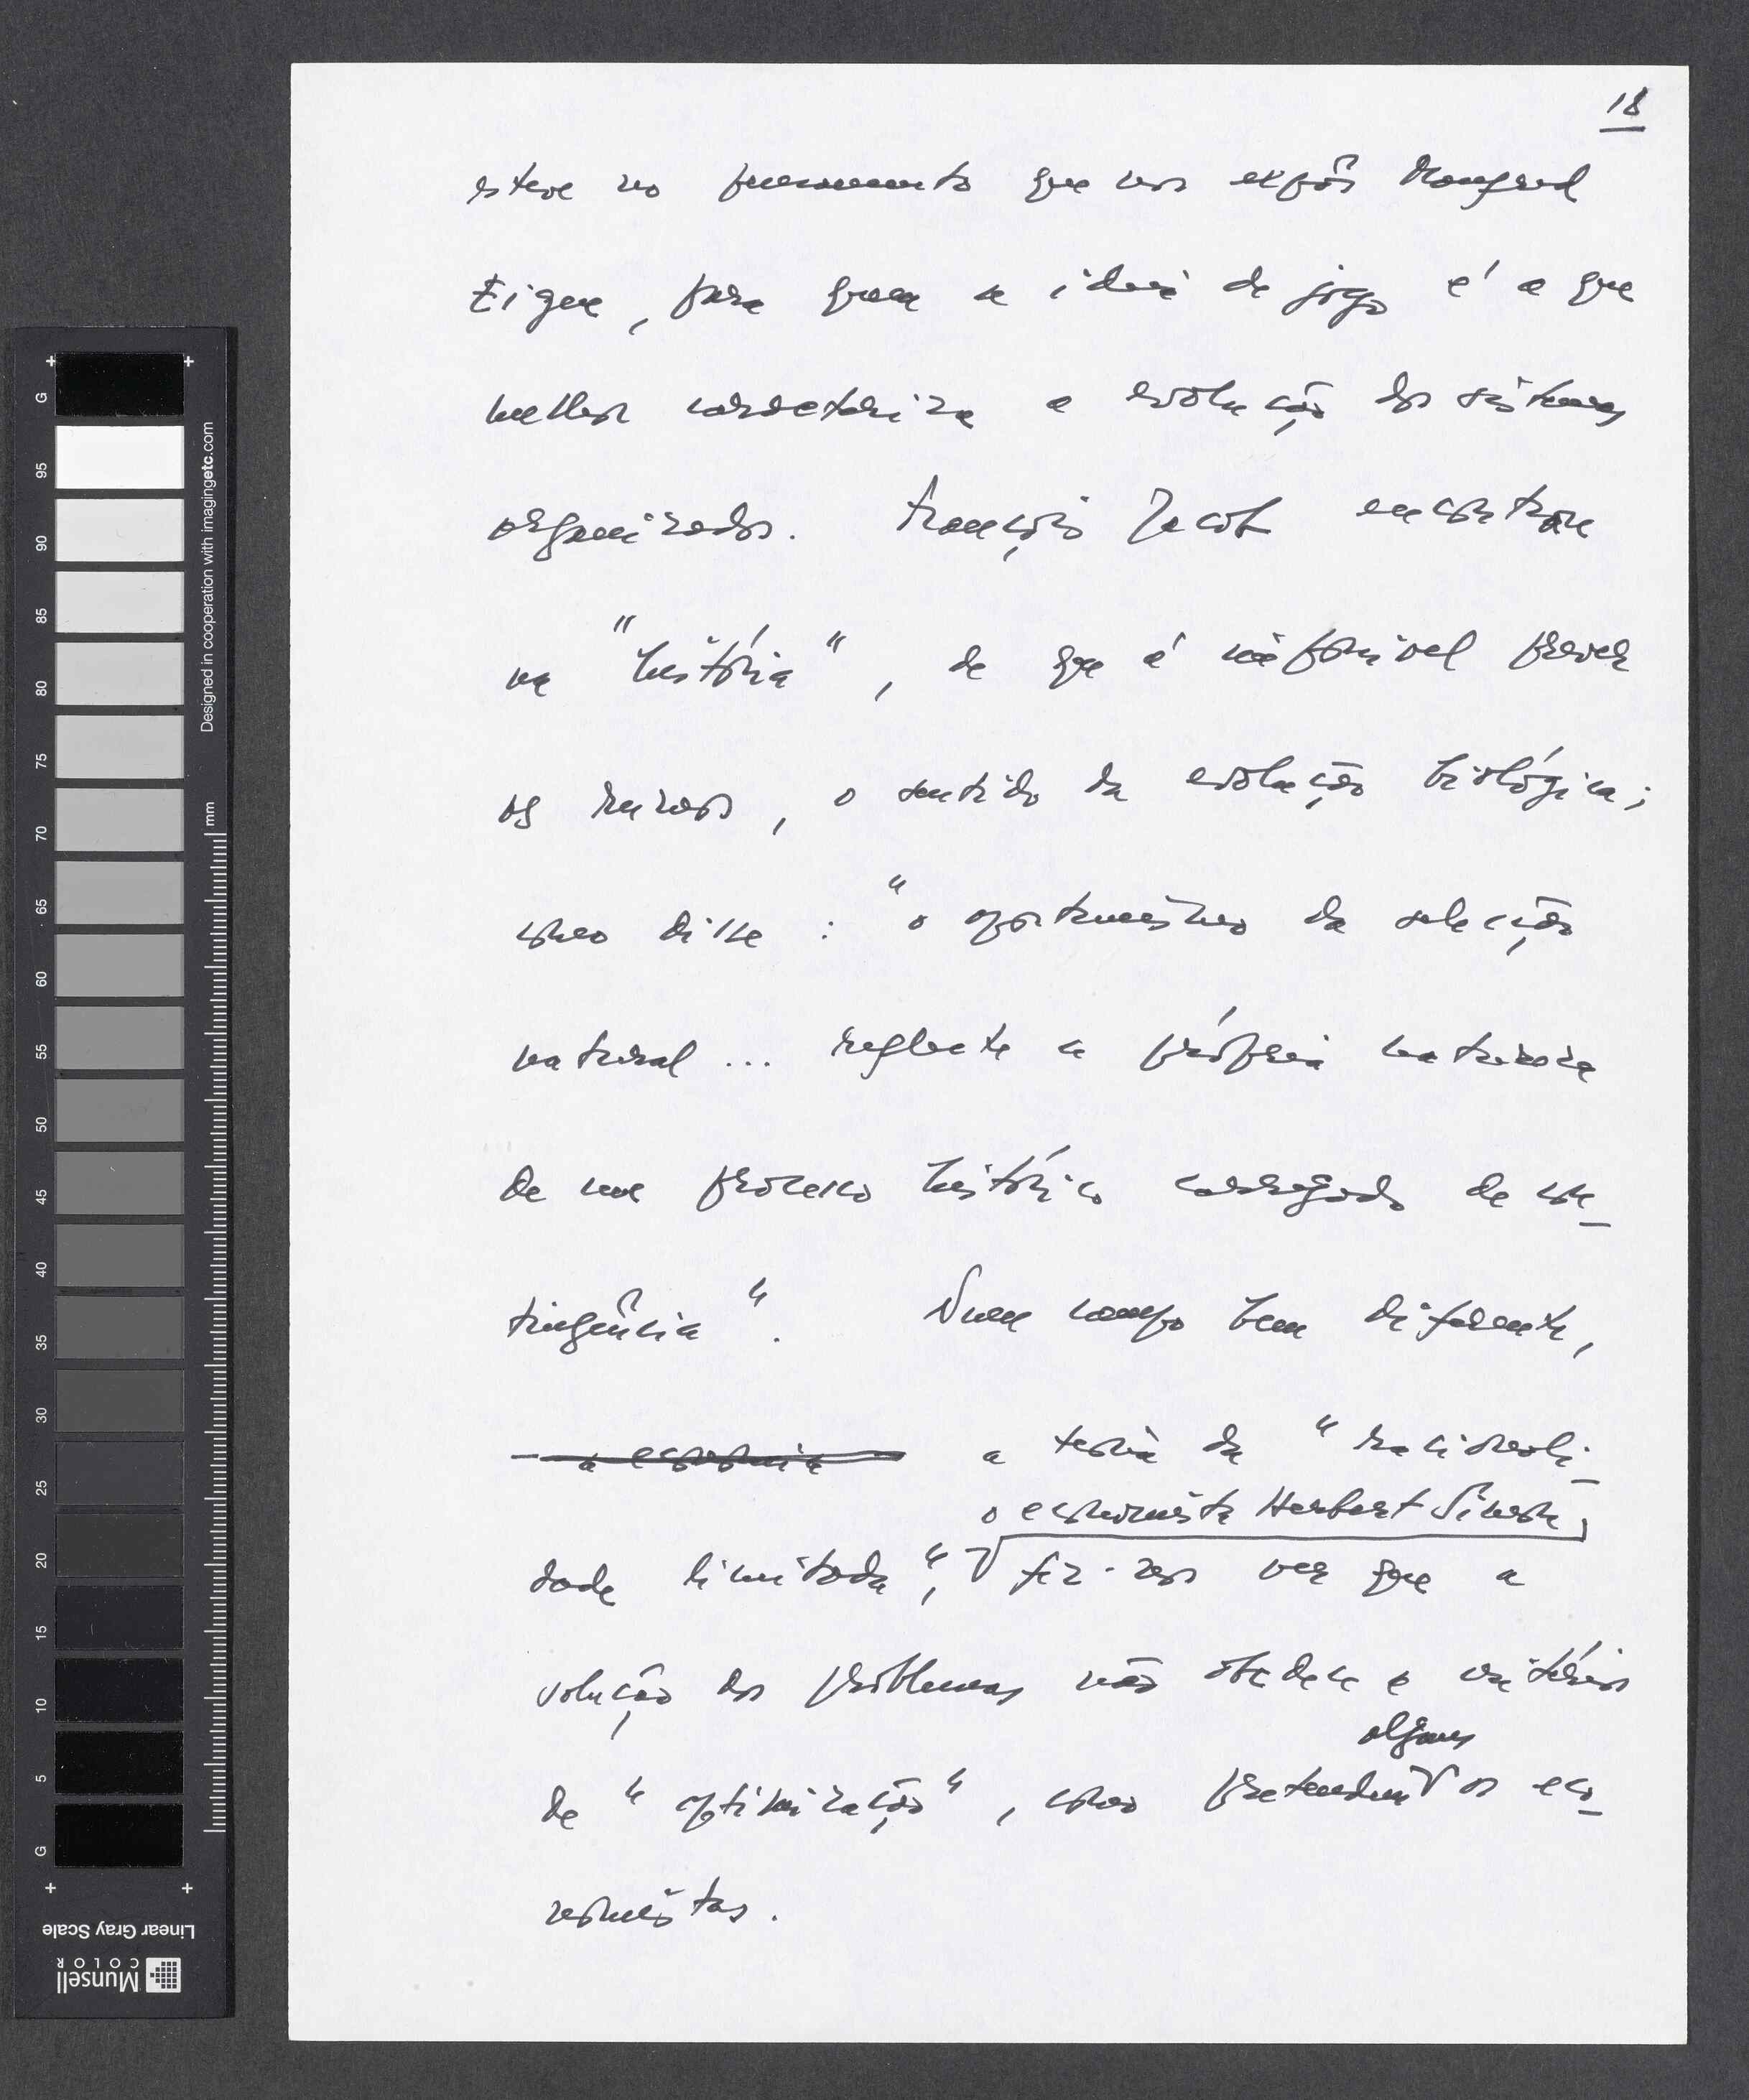 18
esteve no pensamento que nos expôs Manfred
Eigen, para quem a ideia de jogo é a que
melhor caracteriza a evolução dos sistemas
organizados. François Jacob encontrou
na "história", de que é impossível prever
os rumos, o sentido da evolução biológica;
como disse : "o oportunismo da selecção
natural ... reflecte a própria natureza
de um processo histórico carregado de con_
tingência". Num campo bem diferente,
a economia a teoria da "racionali_
o economista Herbert Simon,
dade limitada", fez-nos ver que a
solução dos problemas não obedece a critérios
alguns
de "optimização", como pretendem os eco_
nomistas.
G 95 90 85 80 75 70 65 60 55 50 45 40 35 30 25 20 15 10 5 G
mm
Designed in cooperation with imagingetc.com
Linear Gray Scale
Munsell
COLOR